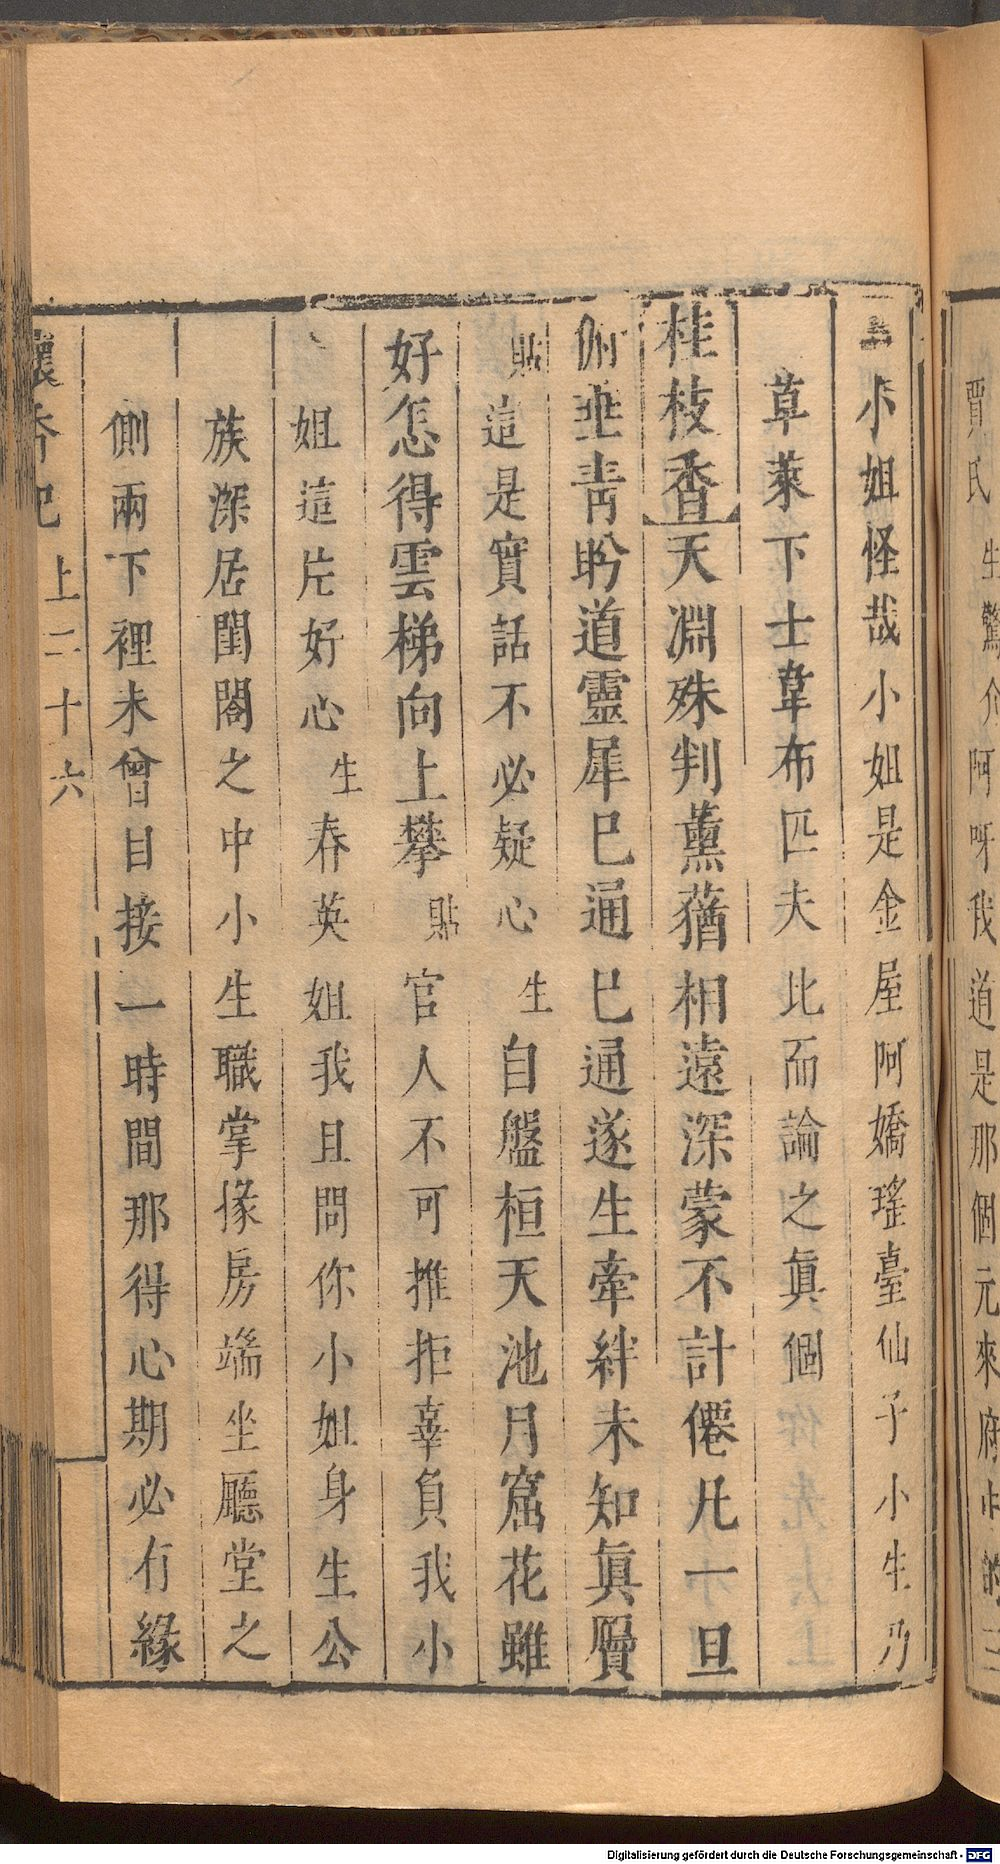 賈氏生驚介阿呀我道是那個元來府中的三
小姐怪哉小姐是金屋阿嬌瑤臺仙子小生乃
草萊下士韋布匹夫比而論之眞個
桂枝香天淵殊判薰蕕相遠深蒙不計僊凡一旦
俯垂青盼道靈犀巳通巳通遂生牽絆未知眞贋
貼這是實話不必疑心生自盤桓天池月窟花雖
好怎得雲梯向上攀貼官人不可推拒辜負我小
姐這片好心生春英姐我且問你小姐身生公
族深居閨閣之中小生職掌掾房端坐廳堂之
側兩下裡未曾目接一時間那得心期必有緣
懷香記上二十六
Digitalisierung gefördert durch die Deutsche Forschungsgemeinschaft - DFG